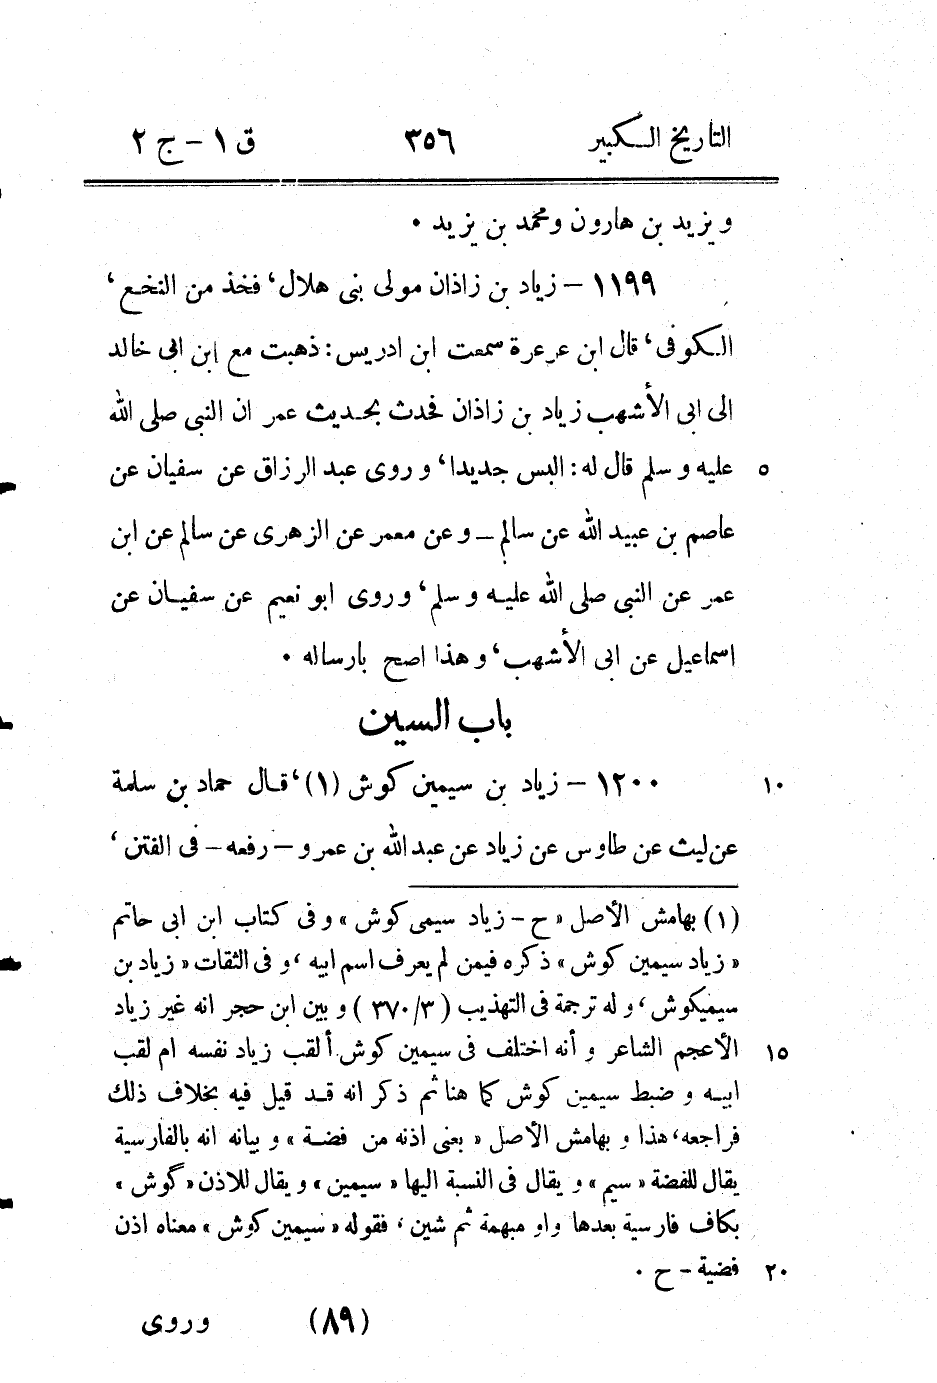 التأريخ الكبير ٣٥٦ ق ١ - ج ٢
ويزيد بن هارون ومحمد بن يزيد ٠
١١٩٩ – زياد بن زاذان مولى بنى هلال، فخذ من النخع،
الكوفى، قال ابن عرعرة سمعت ابن ادريس: ذهبت مع ابن ابى خالد
الى ابى الأشهب زياد بن زاذان فحدث بحديث عمر ان النبى صلى الله
عليه وسلم قال له: البس جديدا، وروى عبد الرزاق عن سفيان عن ٥
عاصم بن عبيد الله عن سالم – وعن معمر عن الزهرى عن سالم عن ابن
عمر عن النبى صلى الله عليه وسلم، وروى ابو نعيم عن سفيان عن
اسماعيل عن ابى الأشهب، وهذا اصح بارساله ٠
باب السين
١٢٠٠ – زياد بن سيمين كوش (١)، قال حماد بن سلمة ١٠
عن ليث عن طاوس عن زياد عن عبد الله بن عمرو – رفعه – فى الفتن،
(١) بهامش الأصل « ح - زياد سيمى كوش » وفى كتاب ابن ابى حاتم
« زياد سيمين كوش » ذكره فيمن لم يعرف اسم ابيه، وفى الثقات « زياد بن
سيميكوش، وله ترجمة فى التهذيب (٣/ ٣٧٠) وبين ابن حجر انه غير زياد
الأعجم الشاعر و أنه اختلف فى سيمين كوش ألقب زياد نفسه ام لقب ١٥
ابيه و ضبط سيمين كوش كما هنا ثم ذكر انه قد قيل فيه بخلاف ذلك
فراجعه، هذا و بهامش الأصل « يعنى اذنه من فضة » و بيانه انه بالفارسية
يقال للفضة « سيم » و يقال فى النسبة اليها « سيمين » و يقال للاذن « گوش »
بكاف فارسية بعدها واو مبهمة ثم شين، فقوله « سيمين كوش » معناه اذن
فضية - ح ٠ ٢٠
(٨٩) وروى